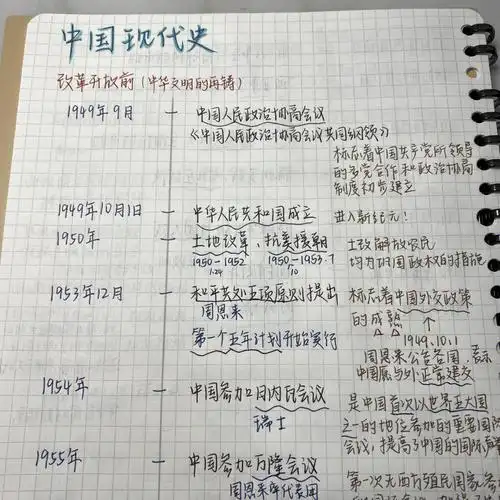 中国现代史
改革开放前(中华文明的再铸)
1949年9月 — 中国人民政治协商会议
《中国人民政治协商会议共同纲领》
标志着中国共产党所领导
的多党合作和政治协商
制度初步建立
1949年10月1日 — 中华人民共和国成立 进入新纪元!
1950年 — 土地改革、抗美援朝 土改解放农民
1950-1952 1950-1953.7 均为巩固政权的措施
1953年12月 — 和平共处五项原则提出 标志着中国外交政策
周恩来 的成熟
第一个五年计划开始实行 1949.10.1
周恩来公告各国,表示
中国愿与外正常建交
1954年 — 中国参加日内瓦会议 是中国首次以世界五大国
瑞士 之一的地位参加的重要国际
会议,提高了中国的国际
1955年 — 中国参加万隆会议 第一次无西方殖民国家参
周恩来率代表团